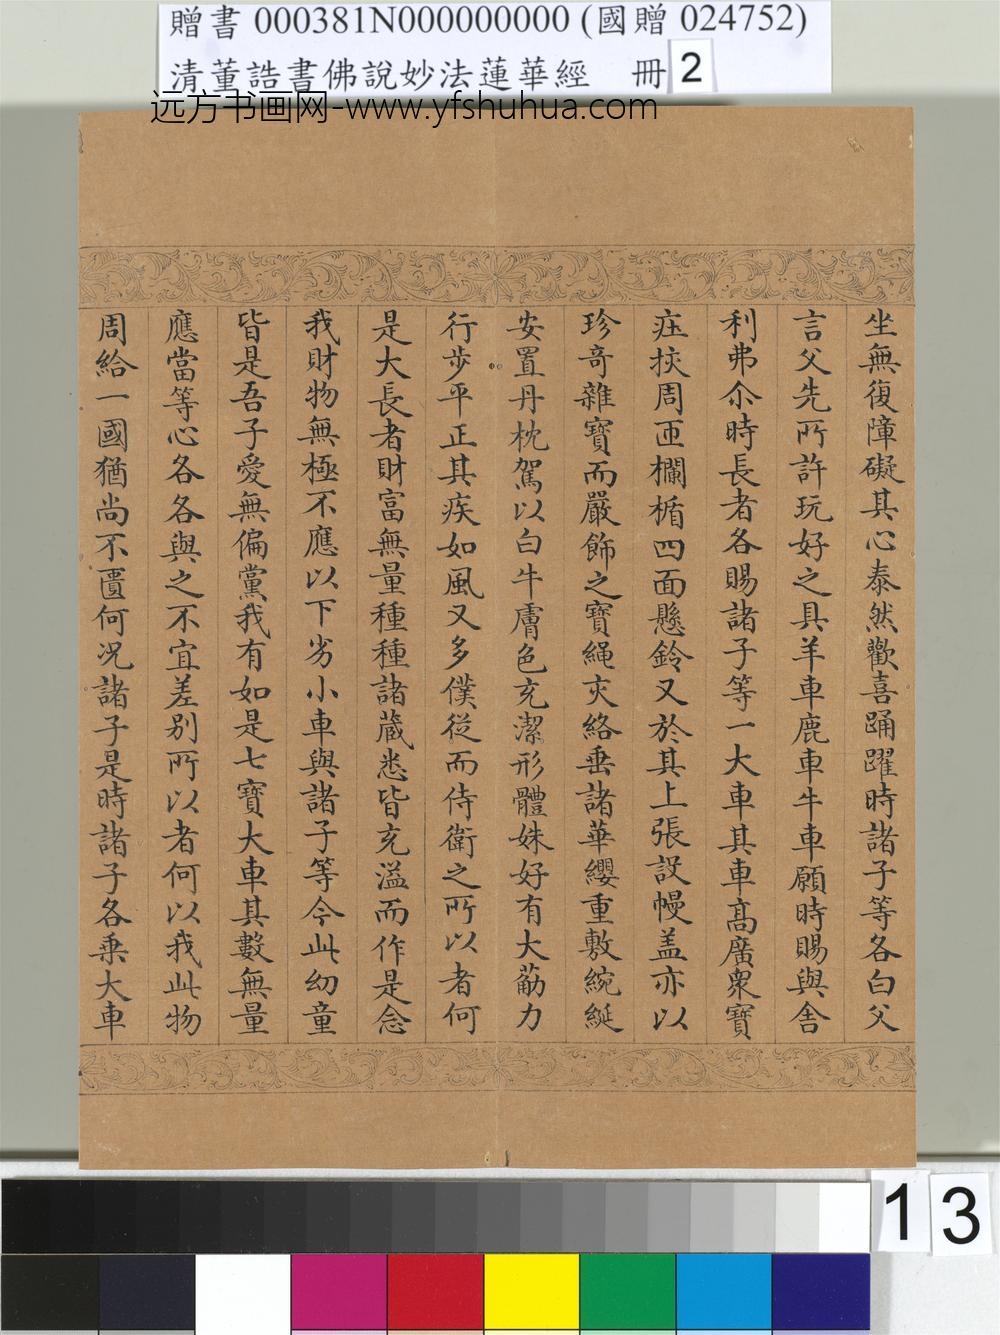 贈書 000381N000000000 (國贈 024752)
清董誥書佛說妙法蓮華經 冊 2
远方书画网-www.yfshuhua.com
坐無復障礙其心泰然歡喜踊躍時諸子等各白父
言父先所許玩好之具羊車鹿車牛車願時賜與舍
利弗尒時長者各賜諸子等一大車其車高廣衆寶
莊挍周匝欄楯四面懸鈴又於其上張設幔盖亦以
珍奇雜寶而嚴飾之寶繩交絡垂諸華纓重敷綩綖
安置丹枕駕以白牛膚色充潔形體姝好有大筋力
行步平正其疾如風又多僕從而侍衛之所以者何
是大長者財富無量種種諸藏悉皆充溢而作是念
我財物無極不應以下劣小車與諸子等今此幼童
皆是吾子愛無偏黨我有如是七寶大車其數無量
應當等心各各與之不宜差別所以者何以我此物
周給一國猶尚不匱何況諸子是時諸子各乘大車
13